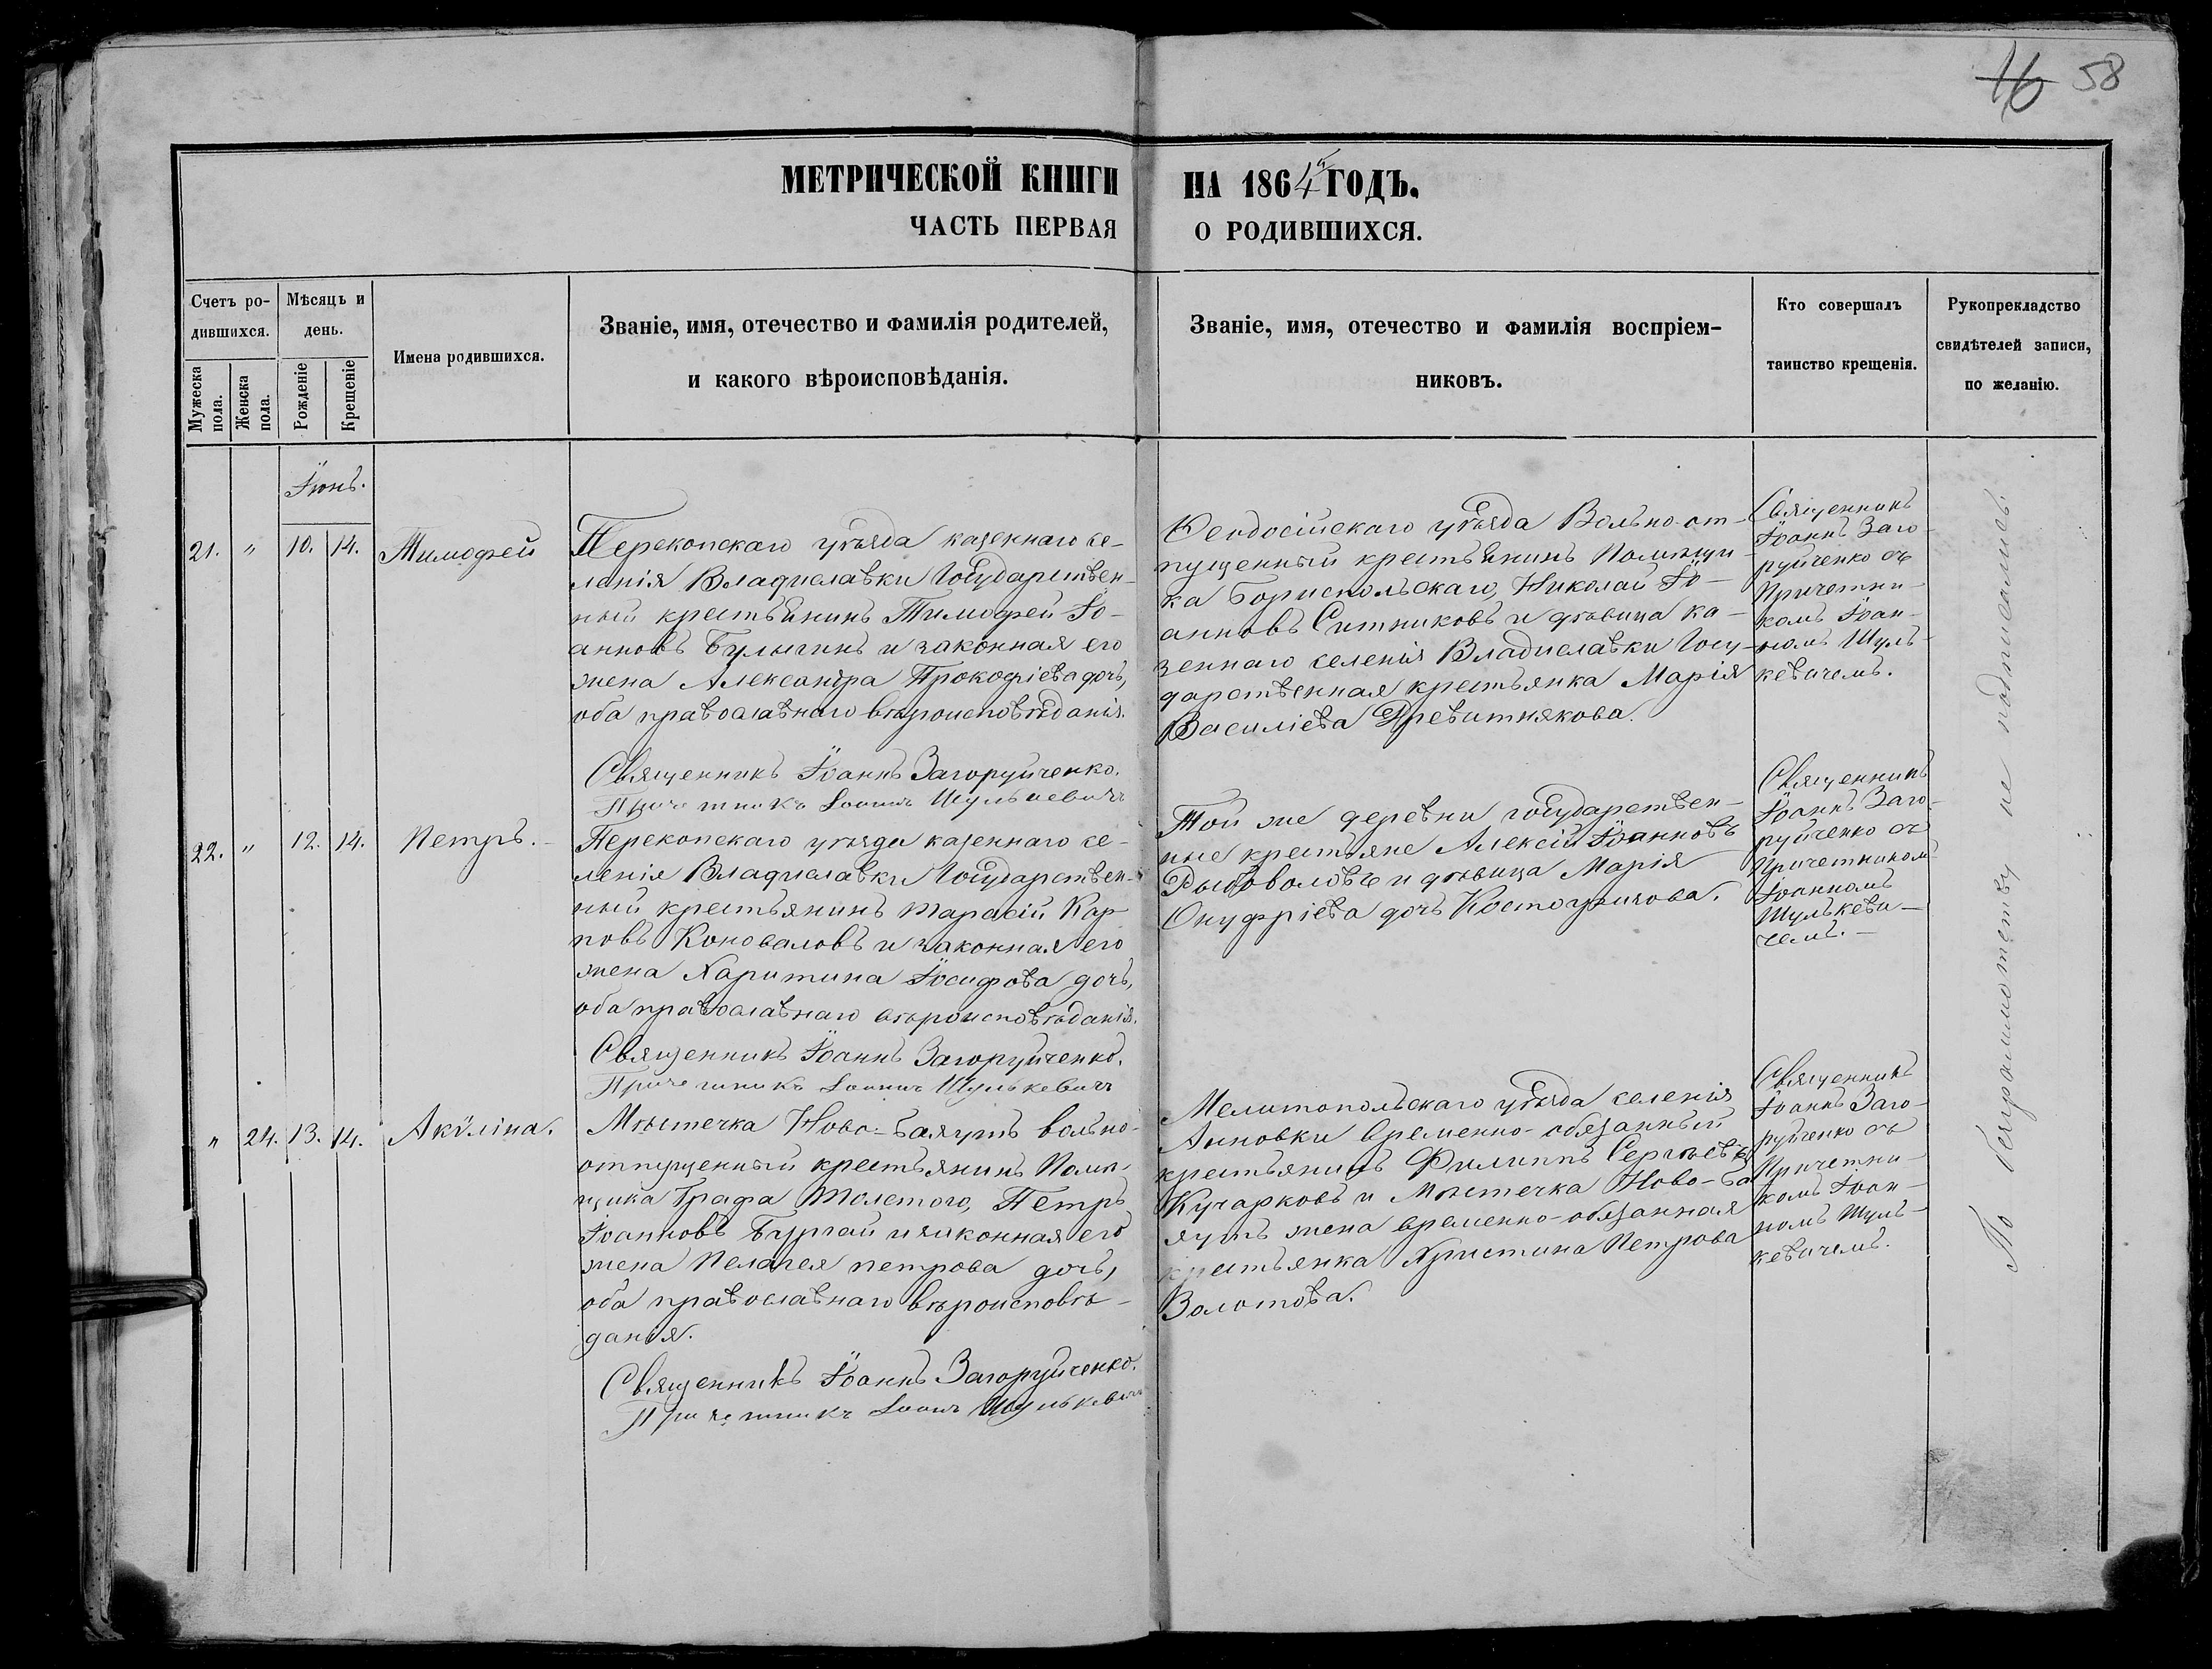 16 58
МЕТРИЧЕСКОЙ КНИГИ НА 1864й ГОДЪ.
ЧАСТЬ ПЕРВАЯ О РОДИВШИХСЯ.
Счетъ родившихся.
Мужеска пола.
Женска пола.
Мѣсяцъ и день.
Рожденіе
Крещеніе
Имена родившихся.
Званіе, имя, отечество и фамилія родителей,
и какого вѣроисповѣданія.
Званіе, имя, отечество и фамилія воспріем-
никовъ.
Кто совершалъ
таинство крещенія.
Рукопрекладство
свидѣтелей записи,
по желанію.
Іюнь.
21. " 10. 14. Тимофей
Перекопскаго уѣзда казеннаго се-
ленія Владиславки Государствен-
ный крестьянинъ Тимофей Іо-
анновъ Булыгинъ и законная его
жена Александра Прокофіева дочь,
оба православнаго вѣроисповѣданія.
Священникъ Іоаннъ Загоруйченко.
Причетникъ Іоаннъ Шулькевичъ
Феодосійскаго уѣзда Вольно-от-
пущенный крестьянинъ Помѣщи-
ка Бориспольскаго, Николай Іо-
анновъ Ситниковъ и дѣвица ка-
зеннаго селенія Владиславки Госу-
дарственная крестьянка Марія
Василіева Древитнякова.
Священникъ
Іоаннъ Заго-
руйченко съ
Причетни-
комъ Іоан-
номъ Шуль-
кевичемъ.
22. " 12. 14. Петръ.
Перекопскаго уѣзда казеннаго се-
ленія Владиславки Государствен-
ный крестьянинъ Тарасій Кар-
повъ Коноваловъ и законная его
жена Харитина Іосифова дочь,
оба православнаго вѣроисповѣданія.
Священникъ Іоаннъ Загоруйченко.
Причетникъ Іоаннъ Шулькевичъ
Той же деревни государствен-
ные крестьяне Алексій Іоанновъ
Рыбоволовъ и дѣвица Марія
Онуфріева дочь
Священникъ
Іоаннъ Заго-
руйченко съ
Причетником
Іоанномъ
Шулькеви-
чемъ.
" 24. 13. 14. Акѵліна.
Мѣстечка Ново-Баяутъ вольно-
отпущенный крестьянинъ Помѣ-
щика Графа Толстого, Петръ
Іоанновъ Бургай и законная его
жена Пелагея петрова дочь,
оба православнаго вѣроисповѣ-
данія.
Священникъ Іоаннъ Загоруйченко.
Причетникъ Іоаннъ Шулькевичъ
Мелитопольскаго уѣзда селенія
Анновки временно-обязанный
крестьянинъ Филиппъ Сергѣевъ
Кучарковъ и Мѣстечка Ново-Ба
яутъ жена временно-обязанная
крестьянка Христина Петрова
Золотова.
Священникъ
Іоаннъ Заго-
руйченко съ
Причетни-
комъ Іоан-
номъ Шуль-
кевичемъ.
По безграмотству не подписались.